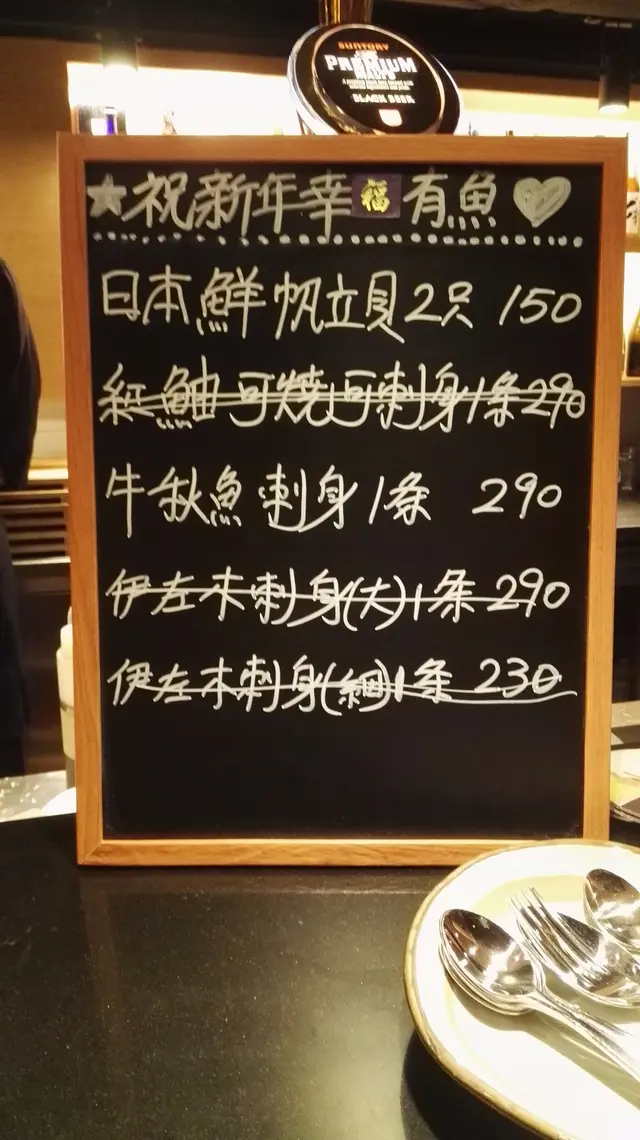 SUNTORY
THE
PREMIUM
MALT'S
BLACK BEER
★祝新年幸福有魚♡
日本鮮帆立貝2只 150
紅魽可燒可刺身1条290
牛秋魚刺身1条 290
伊左木刺身(大)1条290
伊左木刺身(細)1条 230